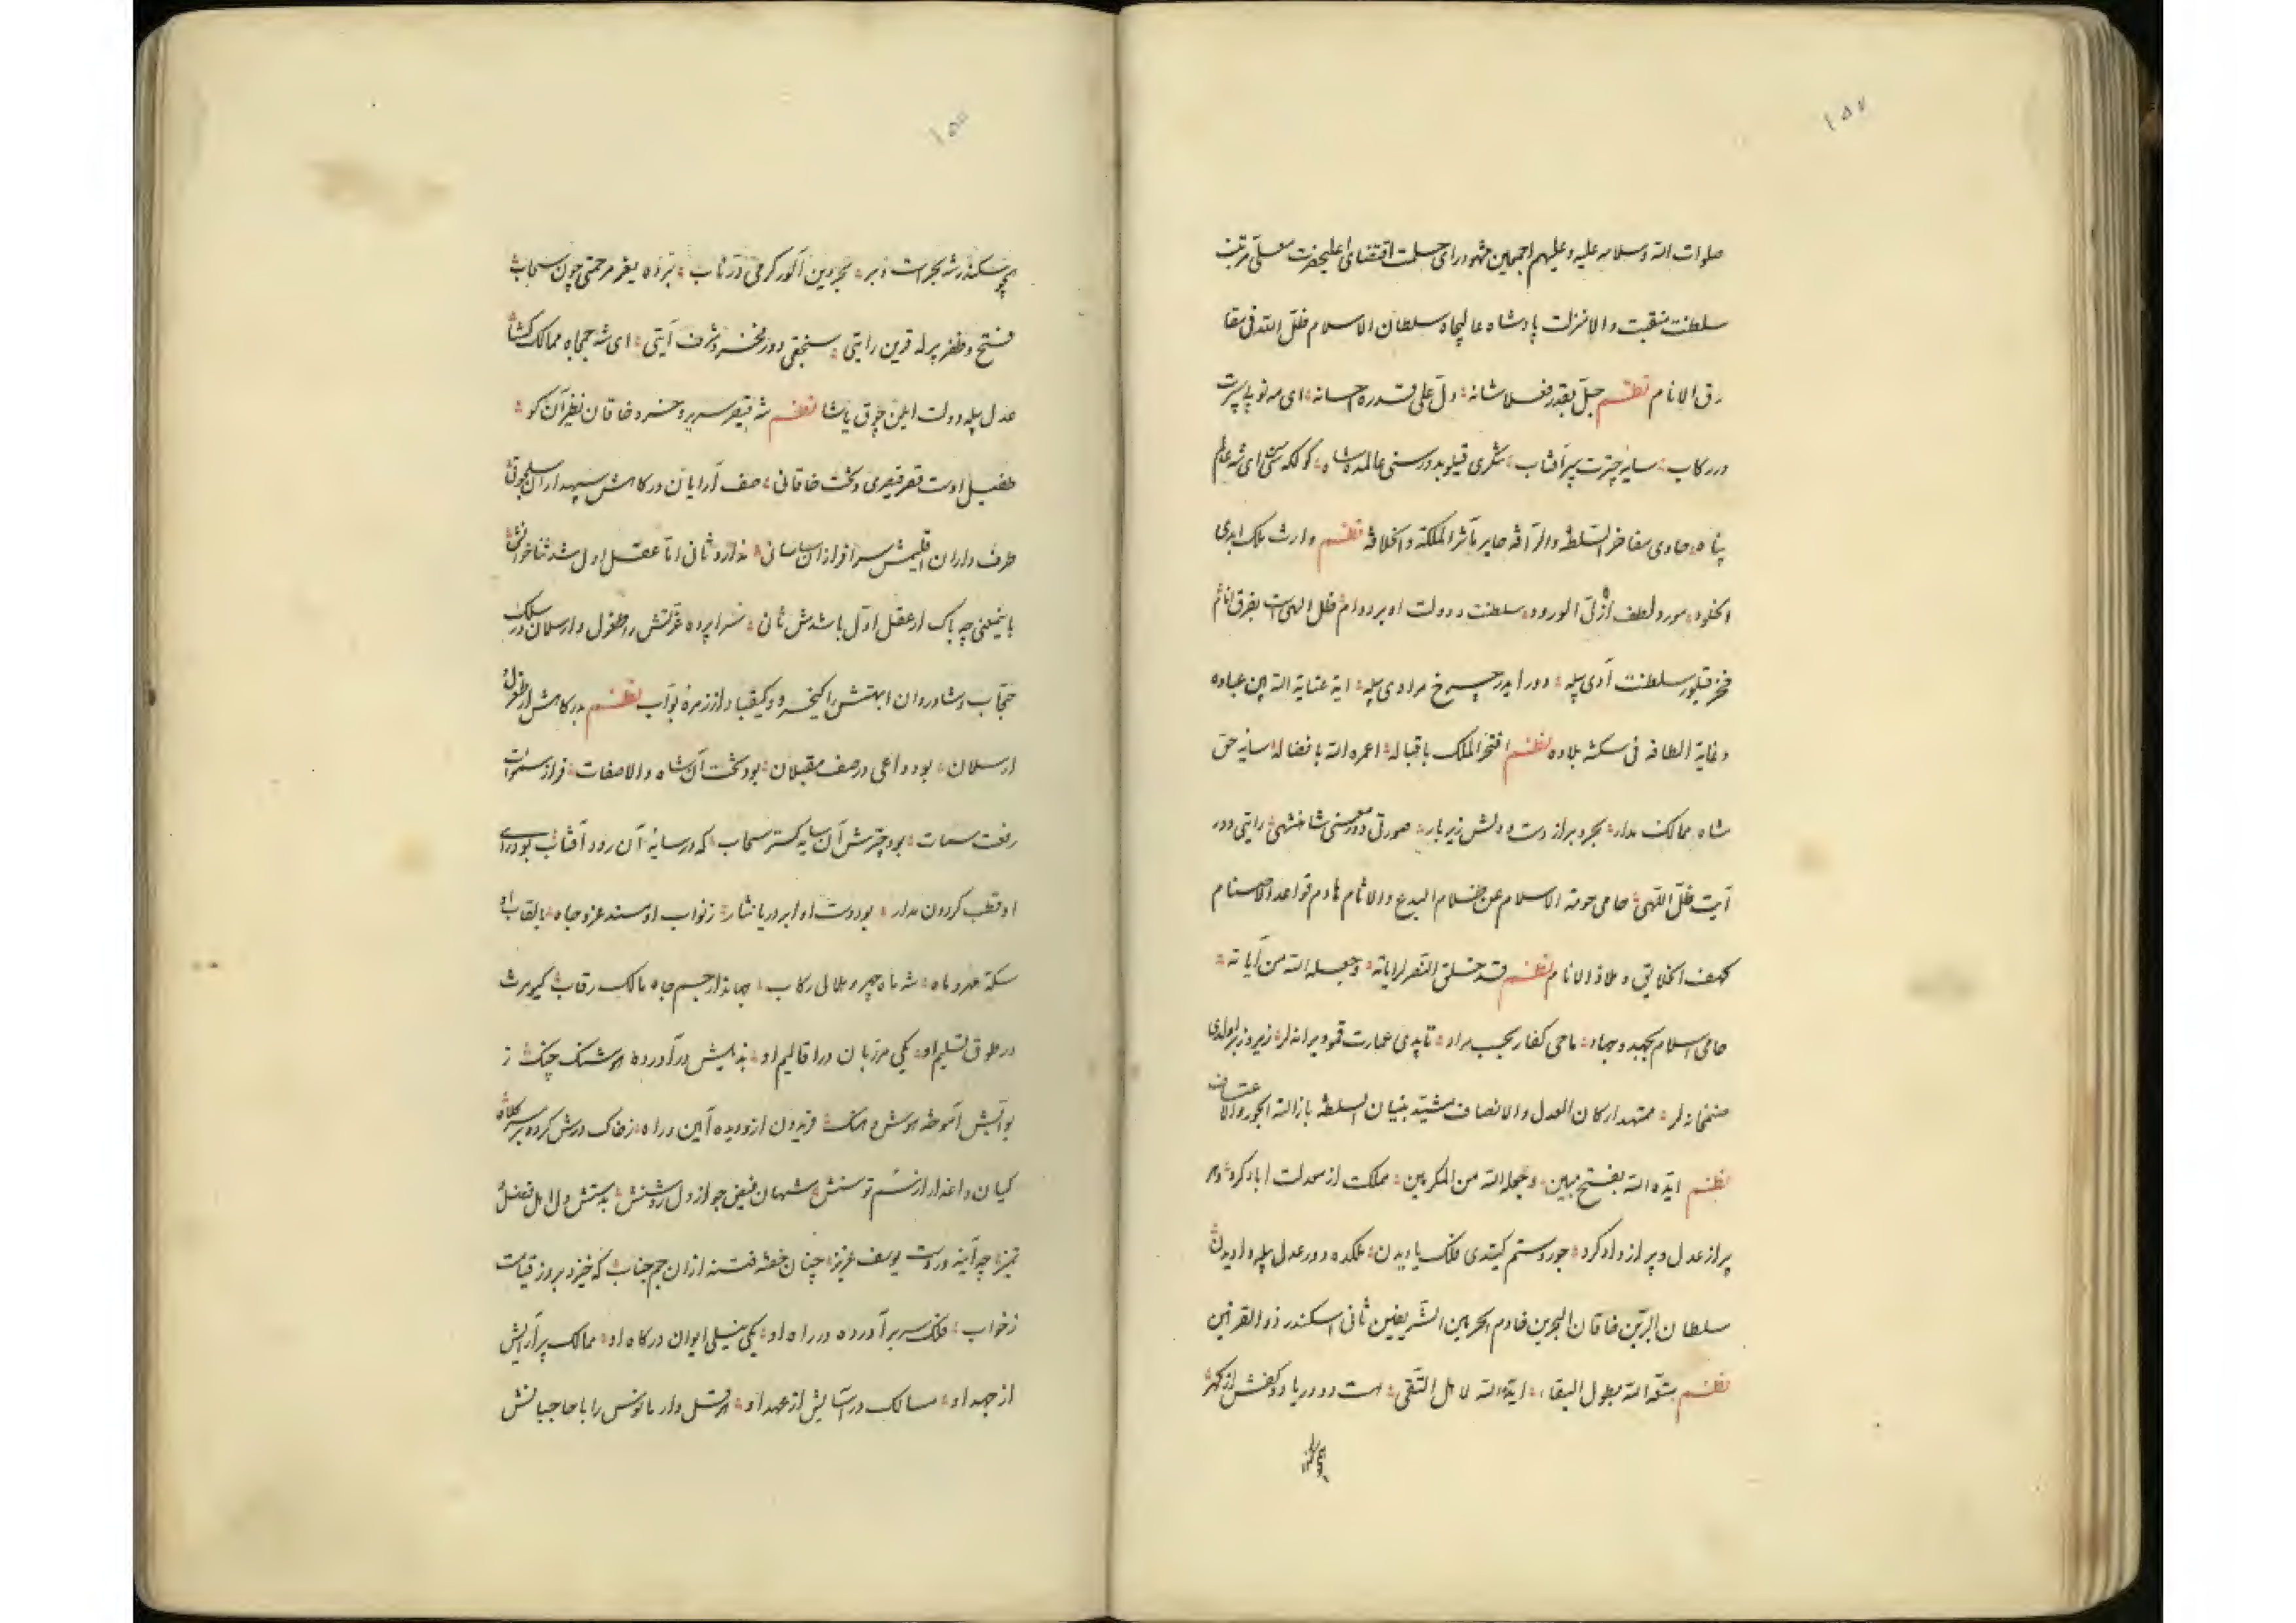 ١٥٧
صلوات الله وسلامه عليه وعليهم اجمعين مشهود رای جلت اقتضای اعلیحضرت معلی مرتبت
سلطنت منقبت والامنزلت پادشاه عالیجاه سلطان الاسلام ظل الله فی مفا
رق الانام نظم جل بقدر فعلا شانه دل علی قدره احسانه ای مه نو پای پرست
در رکاب سایه چترت سپر آفتاب شکری قیلوبدور سنی عالمده شاه کولکه سی ای شه عالم
پناه حاوی مفاخر السلطه والرآفه حایر مآثر المملکة والخلافه نظم وارث ملک ابدی
الخلود مورد لطف ازلی الورود سلطنت و دولت او بر دوام ظل الهی است بفرق انام
فخر قیلور سلطنت آدی بیله دور ایدر چرخ مرادی بیله آیة عنایة الله بین عباده
وغایة الطافه فی بلاده نظم افتخر الملک باقباله اعمره الله بافضاله سایه حق
شاه ممالک مدار بحر و بر از دست و دلش زیر بار صورتی دور معنی شاهنشهی رایتی دور
آیت ظل اللهی حامی حوزة الاسلام عن ظلام البدع والاثام هادم قواعد الاصنام
کهف الخلایق و ملاذ الانام نظم قد خلق النصر لرایاته وجعله الله من آیاته
حامی اسلام بجهد و جهاد ماحی کفار بحسب مراد تاپدی عمارت قمو ویرانه لر زیر و زبر اولدی
صنمخانه لر ممهد ارکان العدل والانصاف مشید بنیان السلطه بازالة الجور والاعتساف
نظم ایده الله بفتح مبین وجعله الله من المکرمین مملکت از معدلت آباد کرد دهر
پر از عدل و پر از داد کرد جور و ستم کیتدی فلک یادیدن ملکده دور عدل بیله دادیدن
سلطان البرین خاقان البحرین خادم الحرمین الشریفین ثانی اسکندر ذو القرنین
نظم متعه الله بطول البقاء ایده الله لاهل التقی هست دو دریا دو کفش از کهر
همچو سکندر
١٥٨
همچو سکندر شه بحرست و بر بحردین آلور کرمی در ناب مرحمتی چون سحاب
فتح و ظفر بیرله قرین رایتی سنجقی دور مخبر و شرف آیتی ای شه جمجاه ممالک کشا
عدل بیله دولت ایلین چوق یاشا نظم شه قیصر سریر و خسرو خاقان نظیر آن کو
طفیل اوست قصر قیصری و تخت خاقانی صف آرایان درکاهش سپهدارا آل سلجوقی
طرف داران اقلیمش سرافرازان ساسانی ندارد ثانی اما عقل اول شد ثناخوانش
باینمعنی چه باک ار عقل اول باشدش ثانی سراپرده عزتش را طغرل و ارسلان در سلک
حجاب و شادروان ابهتش را کیخسرو و کیقباد از زمره نواب نظم بدرکاهش از طغرل
ارسلان بود داعی در صف مقبلان بود تخت آن شاه والاصفات فراز سموات
رفعت سمات بود چترش آن سایه کستر سحاب که در سایه آن رود آفتاب بود رای
او قطب کردون مدار بود دست او ابر دریا نثار ز نواب او مسند عز و جاه بالقاب او
سکه مهر و ماه شه ماه چهر و هلال رکاب جهاندار جم جاه مالک رقاب کیومرث
در طوق تسلیم او یکی مرزبان در اقالیم او بدایش درآورده هوشنک چنک ز
بوابش آموخته هوش و هنک فریدون ازو دیده آیین و راه ز خاک درش کرده بر سر کلاه
کیان داغدار از سم توسنش شهان فیض جو از دل روشنش بدستش دل اهل فضل
تمیز چو آینه در دست یوسف عزیز چنان خفته فتنه ازان جم جناب که خیزد بروز قیامت
ز خواب فلک سر برآورده در راه او یکی نیلی ایوان درکاه او ممالک پرآرایش
از جهد او مسالک در آسایش از عهد او ارسل دار ما نوس را با حاجبانش